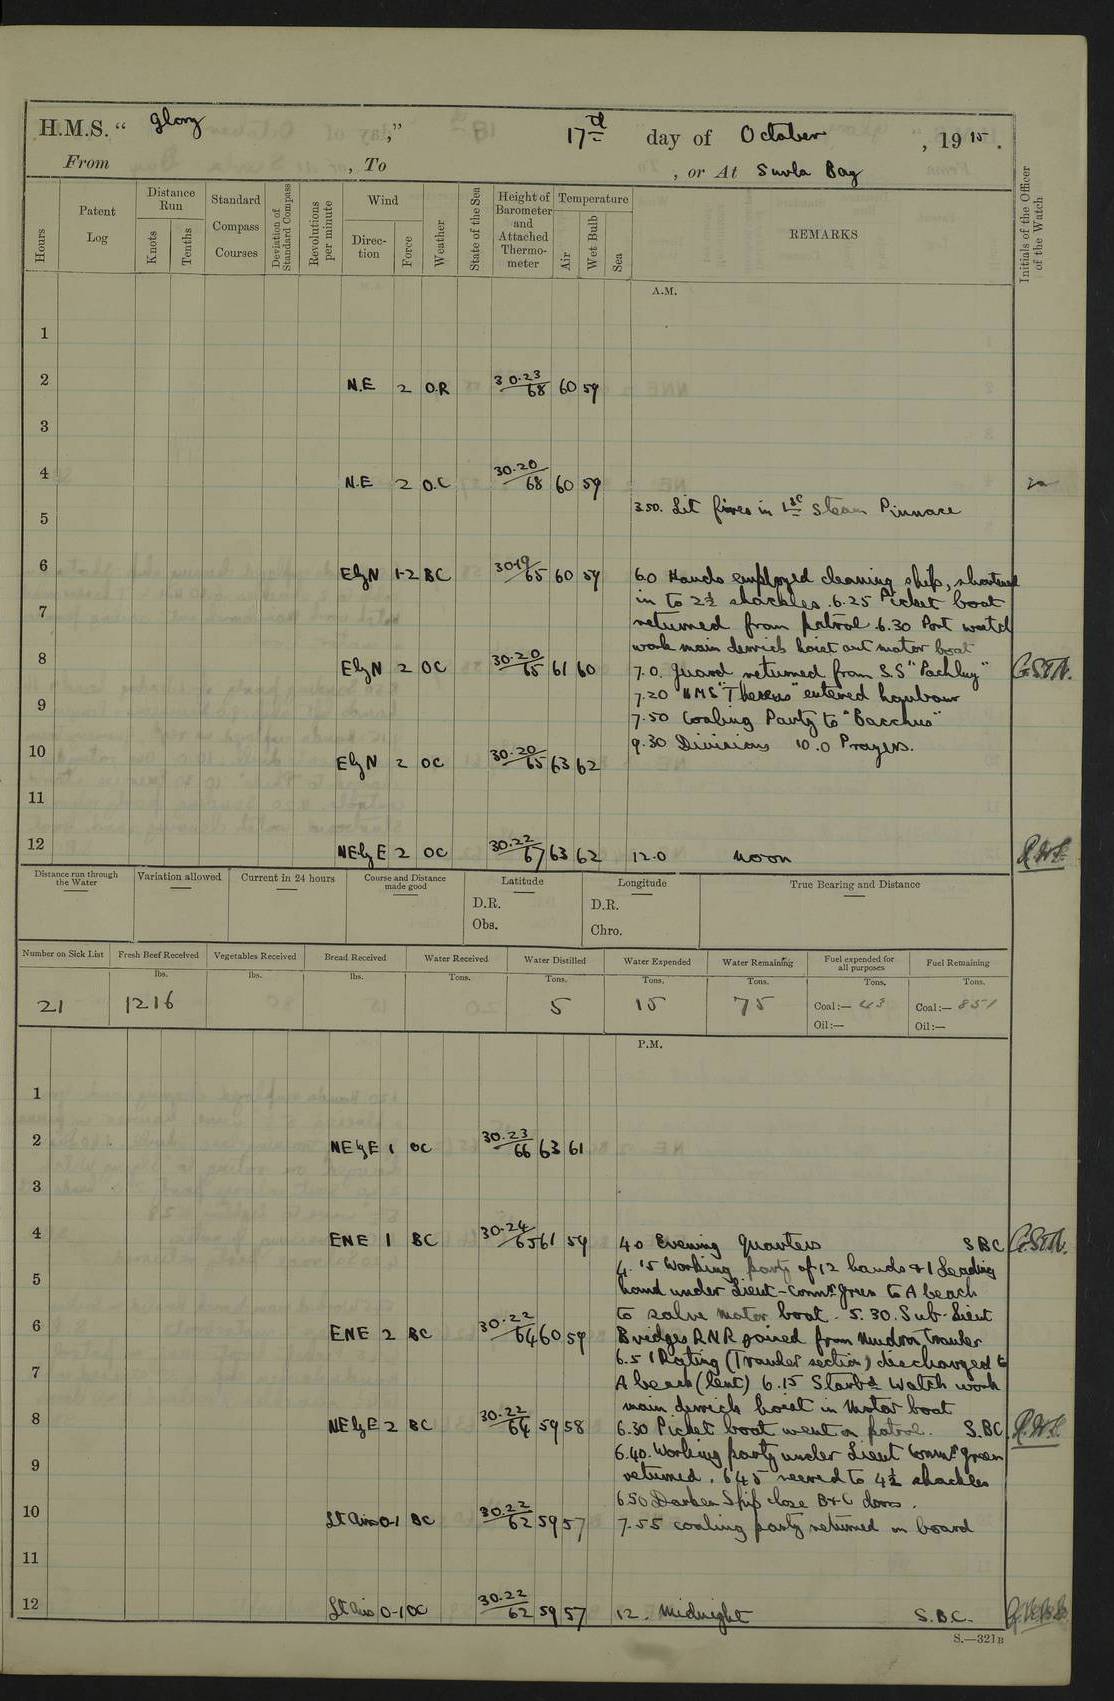 H.M.S. “ Glory ,” 17th day of October , 19 15 .
From , To , or At Suvla Bay
Hours
Patent Log
Distance Run
Knots
Tenths
Standard Compass Courses
Deviation of Standard Compass
Revolutions per minute
Wind
Direction
Force
Weather
State of the Sea
Height of Barometer and Attached Thermometer
Temperature
Air
Wet Bulb
Sea
REMARKS
Initials of the Officer of the Watch
A.M.
1
2 N.E 2 O.R 30.23/68 60 59
3
4 N.E 2 O.C 30.20/68 60 59
3.50. Lit fires in 1st Steam Pinnace
5
6 E by N 1-2 BC 30.19/65 60 59
6.0 Hands employed cleaning ship, shortened
in to 2½ shackles. 6.25 Picket boat
7
returned from patrol. 6.30 Port watch
work main derrick hoist out motor boat
8 E by N 2 OC 30.20/65 61 60
7.0. Guard returned from S.S "
G.S.T.N.
7.20 HMS "Theseus" entered harbour
9
7.50 Coaling Party to "Bacchus"
9.30 Divisions 10.0 Prayers.
10 E by N 2 OC 30.20/65 63 62
11
12 NE by E 2 OC 30.22/67 63 62 12.0 Noon
Distance run through the Water
Variation allowed
Current in 24 hours
Course and Distance made good
Latitude
D.R.
Obs.
Longitude
D.R.
Chro.
True Bearing and Distance
Number on Sick List
Fresh Beef Received
Vegetables Received
Bread Received
Water Received
Water Distilled
Water Expended
Water Remaining
Fuel expended for all purposes
Fuel Remaining
lbs. lbs. lbs. Tons. Tons. Tons. Tons. Tons. Tons.
21 1216 5 15 75 Coal:— 43 Coal:— 851
Oil:— Oil:—
P.M.
1
2 NE by E 1 OC 30.23/66 63 61
3
4 ENE 1 BC 30.24/65 61 59 4.0 Evening Quarters SBC G.S.T.N.
4.15 Working party of 12 hands & 1 Leading
5
hand under Lieut-Commr Green to A beach
to salve motor boat. 5.30. Sub-Lieut
6 ENE 2 BC 30.22/64 60 59
Bridges RNR joined from Mudros Trawler
6.5 1 Rating (Trawler section) discharged to
7
A beach (lent) 6.15 Starbd Watch work
main derrick hoist in motor boat
8 NE by E 2 BC 30.22/64 59 58
6.30 Picket boat went on patrol. S.BC
6.40. Working party under Lieut Commr Green
9
returned. 6.45 veered to 4½ shackles
6.50 Darken Ship close B+C doors.
10 Lt Airs 0-1 BC 30.22/62 59 57
7.55 coaling party returned on board
11
12 Lt Airs 0-1 OC 30.22/62 59 57 12. Midnight S.B.C.
S.—321B